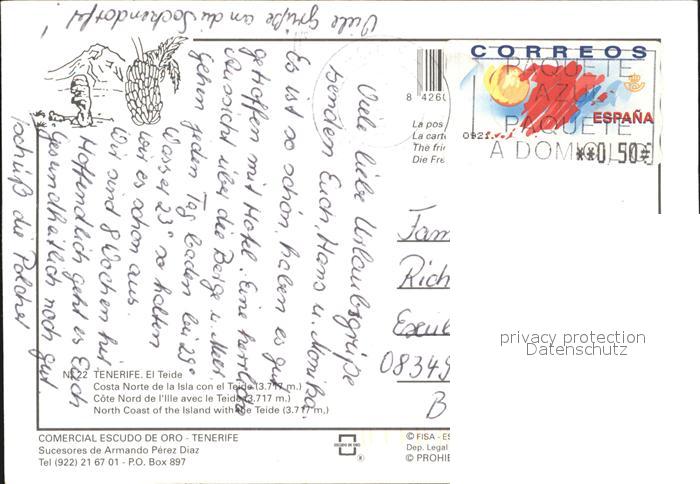 Viele Grüße an die Sockendorfer!
Viele liebe Urlaubsgrüße
senden Euch, Hans u. Monika.
Es ist so schön, haben es gut
getroffen mit Hotel. Eine herrliche
Aussicht über die Berge u. Meer.
Gehen jeden Tag baden bei 25°
Wasser 23° so halten
wir es schon aus.
Wir sind 8 Wochen hier
Hoffendlich geht es Euch
Gesundheitlich noch gut.
Tschüß die
8 4260
La pos
La carte
The frie
Die Fre
CORREOS
ESPAÑA
0921
PAQUETE
AZUL
PAQUETE
A DOMICILIO
**0,50€
Fam
Rich
08349
B
privacy protection
Datenschutz
N.º 22 TENERIFE. El Teide
Costa Norte de la Isla con el Teide (3.717 m.)
Côte Nord de l'Ille avec le Teide (3.717 m.)
North Coast of the Island with the Teide (3.717 m.)
COMERCIAL ESCUDO DE ORO - TENERIFE
Sucesores de Armando Pérez Diaz
Tel (922) 21 67 01 - P.O. Box 897
ESCUDO DE ORO
© FISA - ES
Dep. Legal
© PROHIB